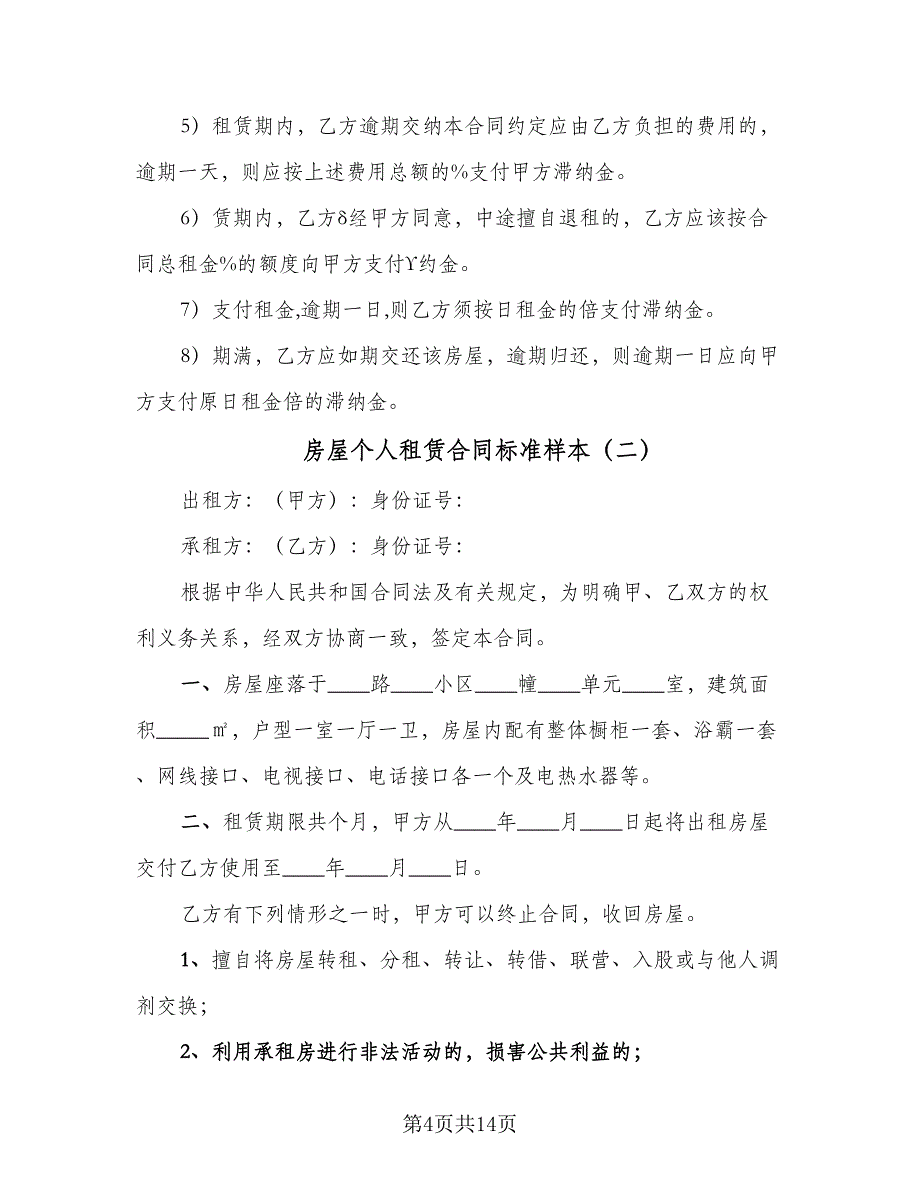 5）租赁期内，乙方逾期交纳本合同约定应由乙方负担的费用的，
逾期一天，则应按上述费用总额的%支付甲方滞纳金。
6）赁期内，乙方δ经甲方同意，中途擅自退租的，乙方应该按合
同总租金%的额度向甲方支付Υ约金。
7）支付租金,逾期一日,则乙方须按日租金的倍支付滞纳金。
8）期满，乙方应如期交还该房屋，逾期归还，则逾期一日应向甲
方支付原日租金倍的滞纳金。
房屋个人租赁合同标准样本（二）
出租方：（甲方）：身份证号：
承租方：（乙方）：身份证号：
根据中华人民共和国合同法及有关规定，为明确甲、乙双方的权
利义务关系，经双方协商一致，签定本合同。
一、房屋座落于____路____小区____幢____单元____室，建筑面
积_____㎡，户型一室一厅一卫，房屋内配有整体橱柜一套、浴霸一套
、网线接口、电视接口、电话接口各一个及电热水器等。
二、租赁期限共个月，甲方从____年____月____日起将出租房屋
交付乙方使用至____年____月____日。
乙方有下列情形之一时，甲方可以终止合同，收回房屋。
1、擅自将房屋转租、分租、转让、转借、联营、入股或与他人调
剂交换；
2、利用承租房进行非法活动的，损害公共利益的；
第4页共14页